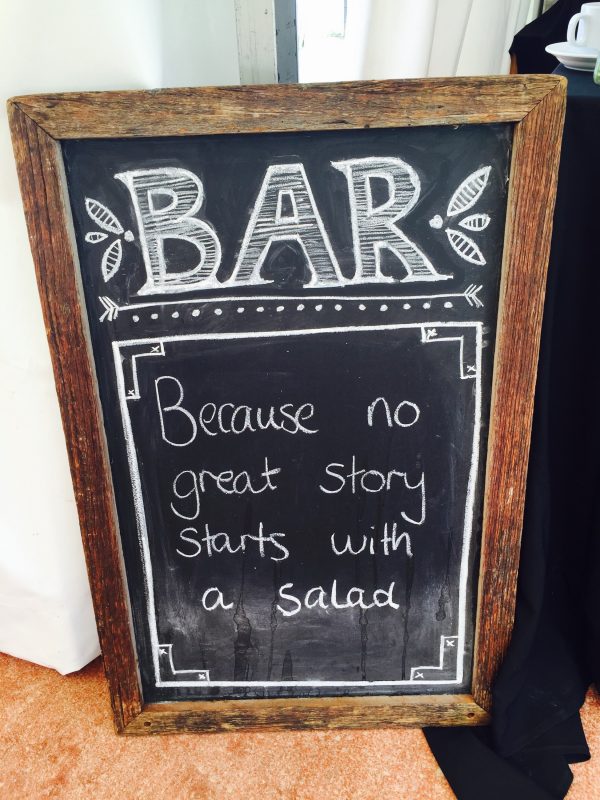 BAR
Because no
great story
starts with
a salad